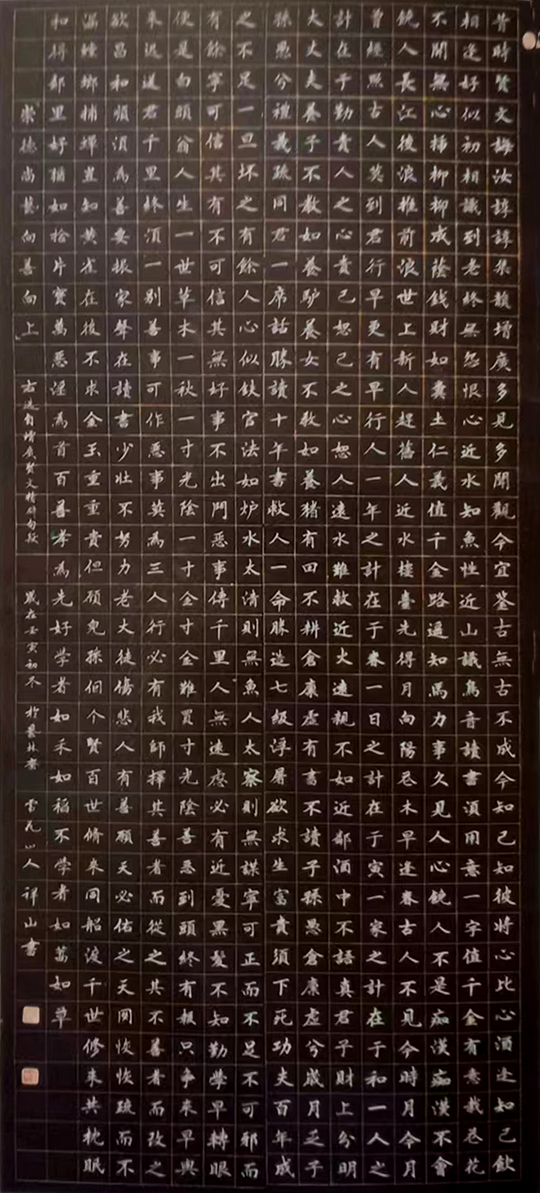 昔時賢文誨汝諄諄集韻增廣多見多聞觀今宜鑒古無古不成今知己知彼將心比心酒逢知己飲
相逢好似初相識到老終無怨恨心近水知魚性近山識鳥音讀書須用意一字值千金有意栽花花
不開無心插柳柳成蔭錢財如糞土仁義值千金路遥知馬力事久見人心饒人不是痴漢痴漢不會
饒人長江後浪推前浪世上新人趕舊人近水樓臺先得月向陽花木早逢春古人不見今時月今月
曾經照古人莫到君行早更有早行人一年之計在于春一日之計在于寅一家之計在于和一人之
計在于勤責人之心責己恕己之心恕人遠水難救近火遠親不如近鄰酒中不語真君子財上分明
大丈夫養子不教如養驢養女不教如養猪有田不耕倉廩虛有書不讀子孫愚倉廩虛兮歲月乏子
孫愚兮禮義疏同君一席話勝讀十年書救人一命勝造七級浮屠欲求生富貴須下死功夫百年成
之不足一旦坏之有餘人心似鉄官法如炉水太清則無魚人太察則無謀寧可正而不足不可邪而
有餘寧可信其有不可信其無好事不出門惡事傳千里人無遠慮必有近憂黑髮不知勤學早轉眼
便是白頭翁人生一世草木一秋一寸光陰一寸金寸金難買寸光陰善惡到頭終有報只爭來早與
來迟送君千里終須一別善事可作惡事莫為三人行必有我師擇其善者而從之其不善者而改之
欲昌和順須為善要振家聲在讀書少壯不努力老大徒傷悲人有善願天必佑之天网恢恢疏而不
漏螳螂捕蟬豈知黄雀在後不求金玉重重貴但願兒孫個個賢百世修來同船渡千世修來共枕眠
和得鄰里好猶如拾片寶萬惡淫為首百善孝為先好學者如禾如稻不學者如蒿如草
崇德尚藝向善向上 右選自增廣賢文精辟句段 歲在壬寅初冬 山人祥山書